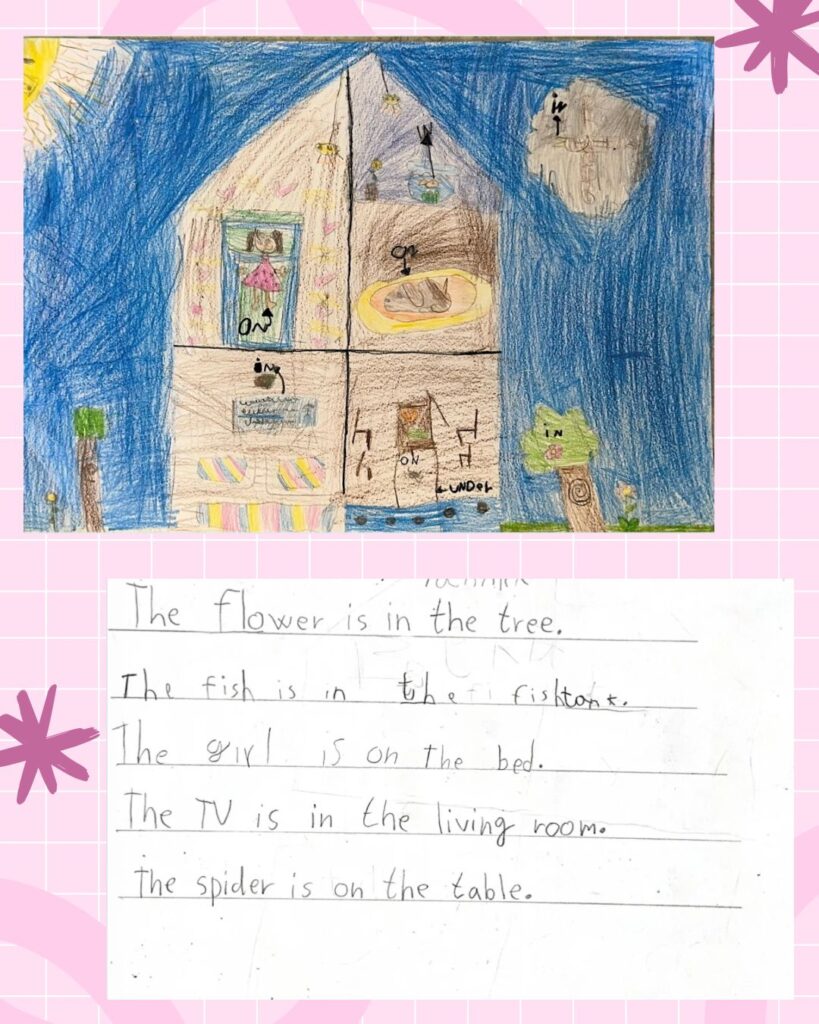 in
in
on
on
in
in
on
under
The flower is in the tree.
The fish is in the fishtank.
The girl is on the bed.
The TV is in the living room.
The spider is on the table.